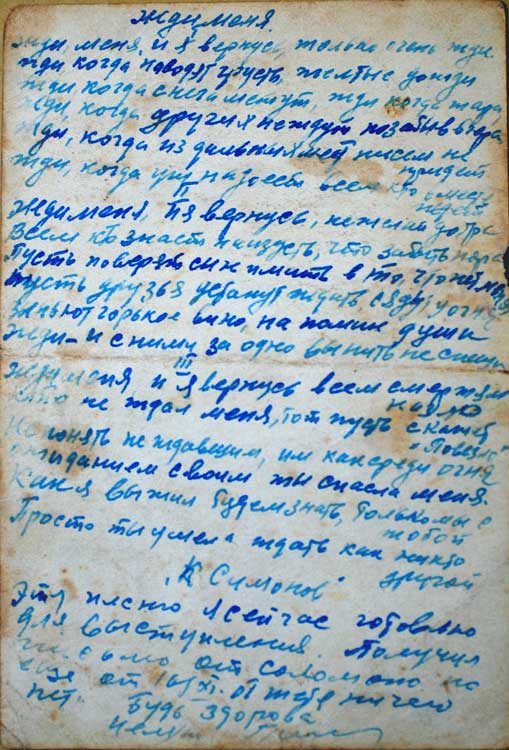 Жди меня.
Жди меня, и я вернусь, только очень жди
Жди, когда наводят грусть, желтые дожди
Жди когда снега метут, жди когда жара,
Жди, когда других не ждут позабыв вчера
Жди, когда из дальних мест писем не
придет
Жди, когда уж надоест всем кто
вместе
II
Жди меня, и я вернусь, не желай добра
Всем кто знает наизусть, что забыть пора
Пусть поверят сын и мать в то, что нет меня
Пусть друзья устанут ждать, сядут у огня
Выпьют горькое вино, на помин души
Жди – и с ними за одно выпить не спеши
III
Жди меня и я вернусь всем смертям
на зло
Кто не ждал меня, тот пусть скажет
"Повезло"
Не понять не ждавшим, им как среди огня
ожиданием своим ты спасла меня.
Как я выжил будем знать, только мы с
тобой
Просто ты умела ждать как никто
другой
"К Симонов"
Эту песню я сейчас готовлю
для выступления. Получил
письмо от Соломона
еще от XI. от тебя ничего
нет.
Будь здорова